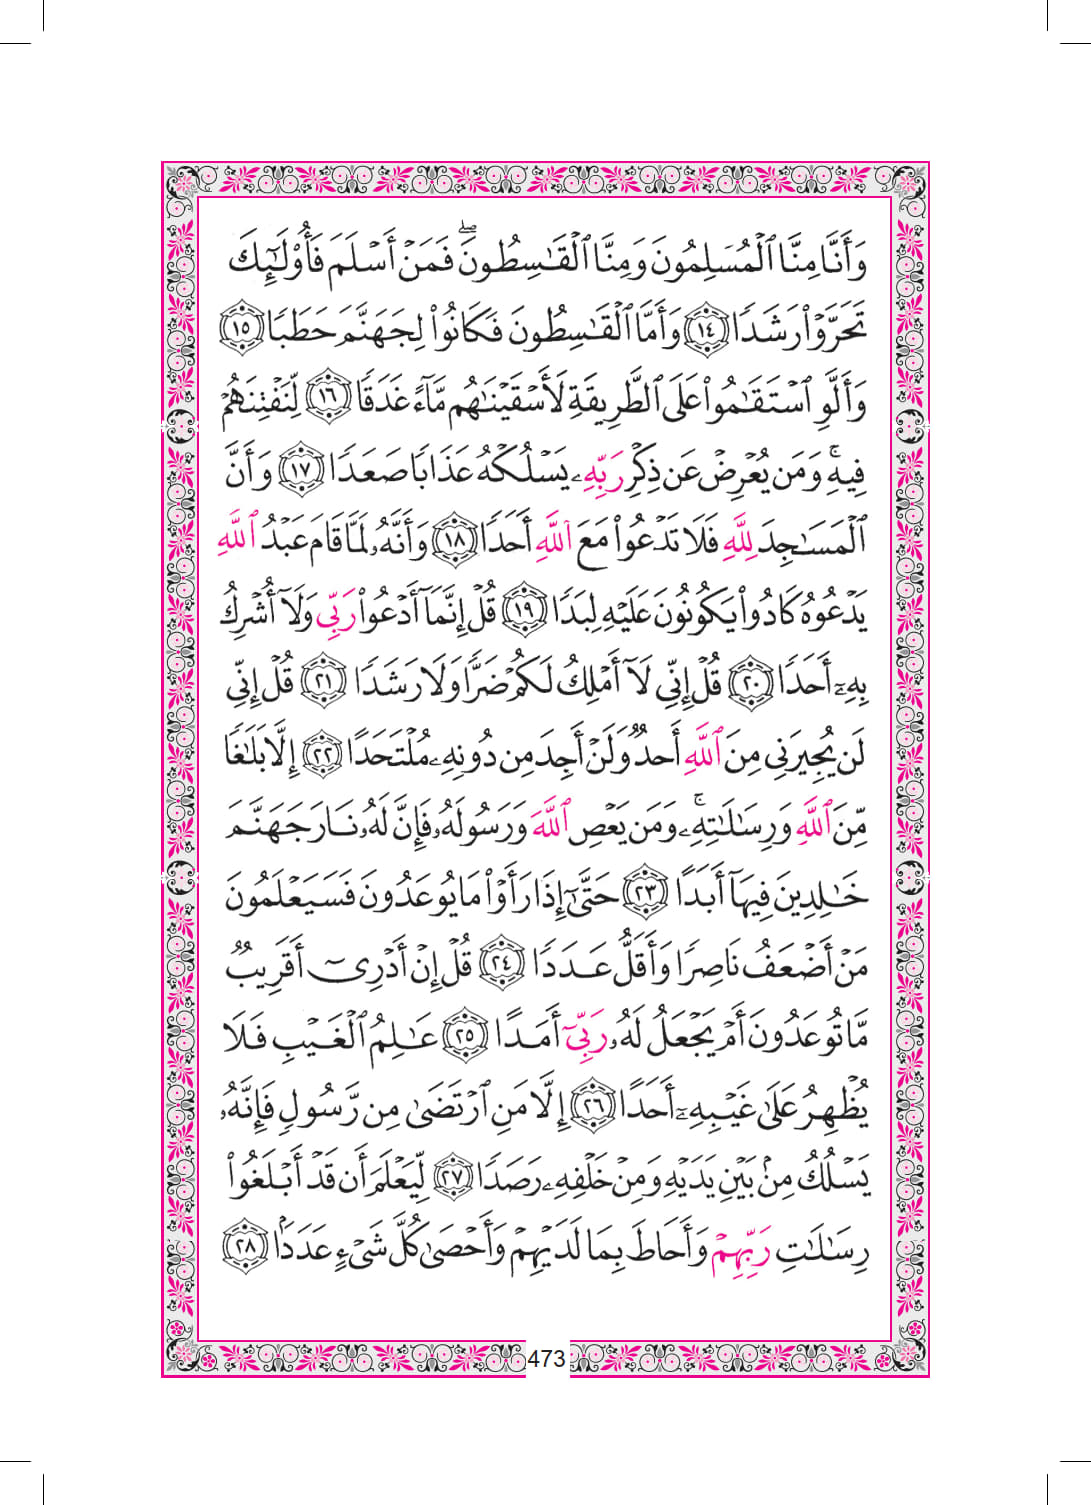 وَأَنَّا مِنَّا ٱلْمُسْلِمُونَ وَمِنَّا ٱلْقَٰسِطُونَۖ فَمَنْ أَسْلَمَ فَأُو۟لَٰٓئِكَ
تَحَرَّوْا۟ رَشَدًا ١٤ وَأَمَّا ٱلْقَٰسِطُونَ فَكَانُوا۟ لِجَهَنَّمَ حَطَبًا ١٥
وَأَلَّوِ ٱسْتَقَٰمُوا۟ عَلَى ٱلطَّرِيقَةِ لَأَسْقَيْنَٰهُم مَّآءً غَدَقًا ١٦ لِّنَفْتِنَهُمْ
فِيهِۚ وَمَن يُعْرِضْ عَن ذِكْرِ رَبِّهِۦ يَسْلُكْهُ عَذَابًا صَعَدًا ١٧ وَأَنَّ
ٱلْمَسَٰجِدَ لِلَّهِ فَلَا تَدْعُوا۟ مَعَ ٱللَّهِ أَحَدًا ١٨ وَأَنَّهُۥ لَمَّا قَامَ عَبْدُ ٱللَّهِ
يَدْعُوهُ كَادُوا۟ يَكُونُونَ عَلَيْهِ لِبَدًا ١٩ قُلْ إِنَّمَآ أَدْعُوا۟ رَبِّى وَلَآ أُشْرِكُ
بِهِۦٓ أَحَدًا ٢٠ قُلْ إِنِّى لَآ أَمْلِكُ لَكُمْ ضَرًّا وَلَا رَشَدًا ٢١ قُلْ إِنِّى
لَن يُجِيرَنِى مِنَ ٱللَّهِ أَحَدٌ وَلَنْ أَجِدَ مِن دُونِهِۦ مُلْتَحَدًا ٢٢ إِلَّا بَلَٰغًا
مِّنَ ٱللَّهِ وَرِسَٰلَٰتِهِۦۚ وَمَن يَعْصِ ٱللَّهَ وَرَسُولَهُۥ فَإِنَّ لَهُۥ نَارَ جَهَنَّمَ
خَٰلِدِينَ فِيهَآ أَبَدًا ٢٣ حَتَّىٰٓ إِذَا رَأَوْا۟ مَا يُوعَدُونَ فَسَيَعْلَمُونَ
مَنْ أَضْعَفُ نَاصِرًا وَأَقَلُّ عَدَدًا ٢٤ قُلْ إِنْ أَدْرِىٓ أَقَرِيبٌ
مَّا تُوعَدُونَ أَمْ يَجْعَلُ لَهُۥ رَبِّىٓ أَمَدًا ٢٥ عَٰلِمُ ٱلْغَيْبِ فَلَا
يُظْهِرُ عَلَىٰ غَيْبِهِۦٓ أَحَدًا ٢٦ إِلَّا مَنِ ٱرْتَضَىٰ مِن رَّسُولٍ فَإِنَّهُۥ
يَسْلُكُ مِنۢ بَيْنِ يَدَيْهِ وَمِنْ خَلْفِهِۦ رَصَدًا ٢٧ لِّيَعْلَمَ أَن قَدْ أَبْلَغُوا۟
رِسَٰلَٰتِ رَبِّهِمْ وَأَحَاطَ بِمَا لَدَيْهِمْ وَأَحْصَىٰ كُلَّ شَىْءٍ عَدَدًۢا ٢٨
473